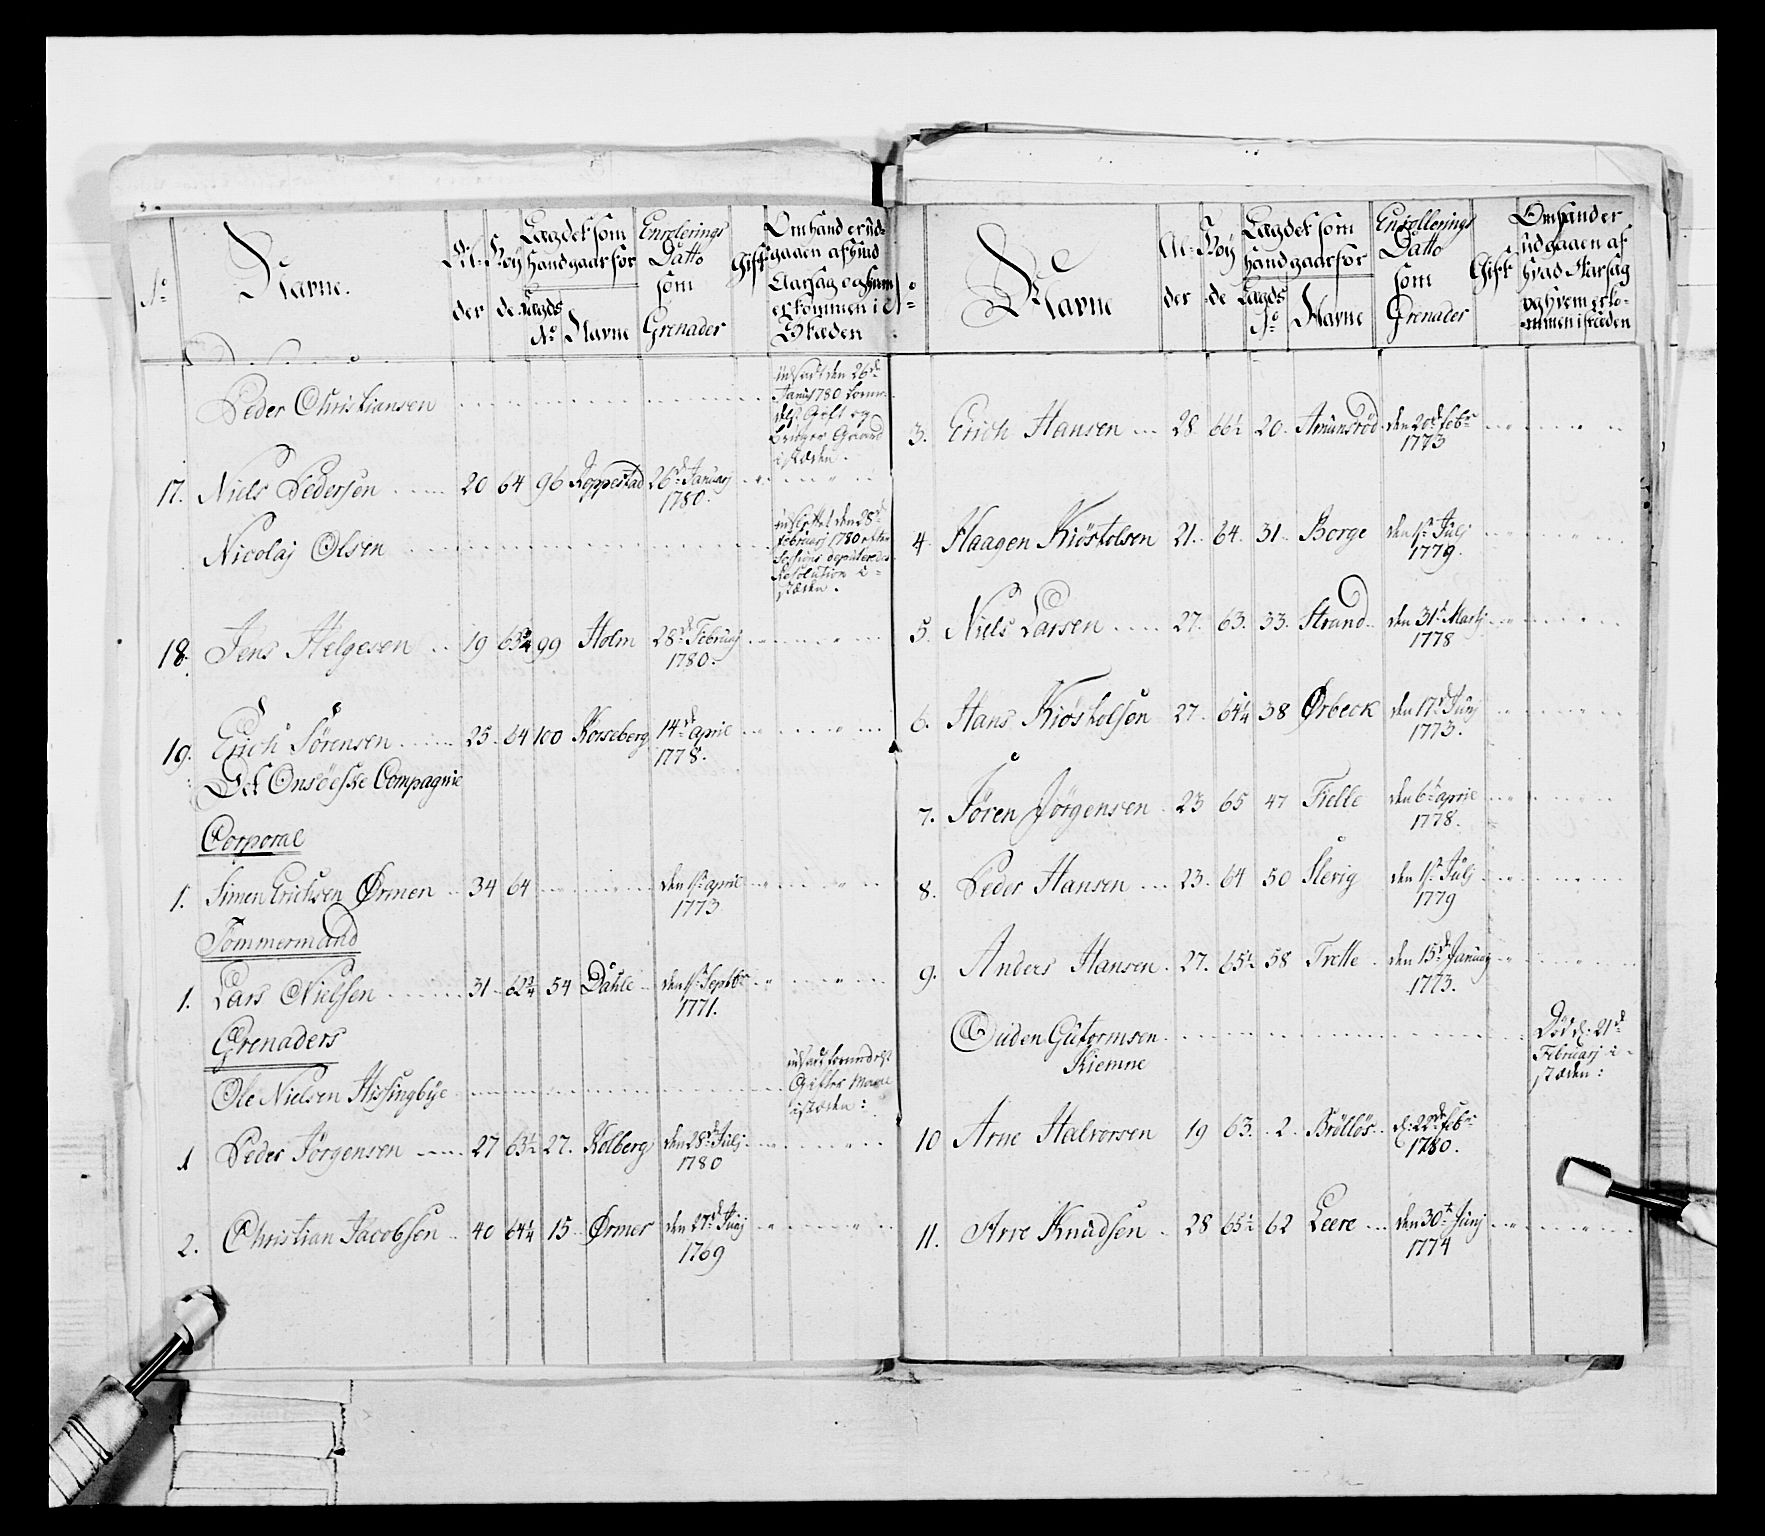 No
Navne.
Al-
der
Høy
de
Lagdet som
hand gaar for
Lagds
No Navne
Enrolerings
Datto
som
Grenader
Gift
Om hand er ud-
gaaen af hvad
Aarsag og hvem
er kommen i
Stæden
Peder Christiansen
udsadt den 26de
17. Niels Pedersen 20 64 96 Roppestad 26de Januarj
1780.
Nicolaj Olsen
Februarj 1780 efter
Sessions deputeredes
Resolution i-
stæden.
18. Jens Helgesen 19 63 3/4 99 Holm 28de Februarj
1780.
19. Erich Sørensen 25 64 100 Korseberg 14de april
1778.
Det Onsøeske Compagnie
Corporal
1. Simen Erichsen Ørmen 34 64 den 1ste april
1773
Tømmermand
1. Lars Nielsen 31 62 3/4 54 Dahle den 1ste Septbr
1771.
Grenaders
Ole Nielsen Hissingbye
istæden:
1 Peder Jørgensen 27 63 1/2 27. Kolberg den 28de Julj
1780
2. Christian Jacobsen 40 64 1/4 15 Ørmer den 27de Junj
1769
No
Navne
Al-
der
Høy
de
Lagdet som
hand gaar for
Lagds
No Navne
Enrollerings
Datto
som
Grenader
Gift
Om hand er
udgaaen af
hvad Aarsag
og hvem er ko-
mmen i stæden
3. Erich Hansen 28 66 1/2 20 Amundsrød den 20de Febr
1773
4 Haagen Kiøstelsen 21. 64. 31 Borge den 1ste Julj
1779.
5. Niels Larsen 27. 63. 33. Strand den 31te Martj
1778
6. Hans Kiøstelsen 27 64 1/4 38 Ørbeck den 17de Junj
1773.
7. Søren Jørgensen 23 65 47 Fielle den 6te april
1778.
8. Peder Hansen 23. 64 50 Slevig den 1ste Julj
1779
9. Anders Hansen 27. 65 1/2 58 Trette den 15de Januarj
1773.
Guden Gutormsen
Kiemne
Død d: 21de
Februarj i-
stæden:
10 Arne Halvorsen 19 63. 2 Brølløs d: 22de Febr
1780.
11. Arre Knudsen 28 65 1/2 62 Leere den 30te Junj
1774